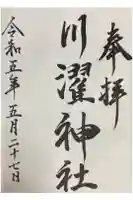 奉拝
川濯神社
令和五年 五月二十七日